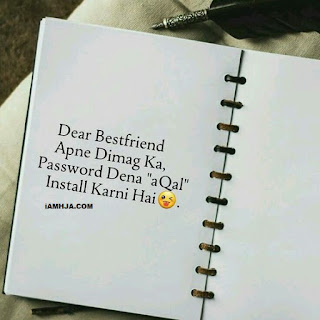 Dear Bestfriend
Apne Dimag Ka,
Password Dena "aQal"
Install Karni Hai😜.
iAMHJA.COM